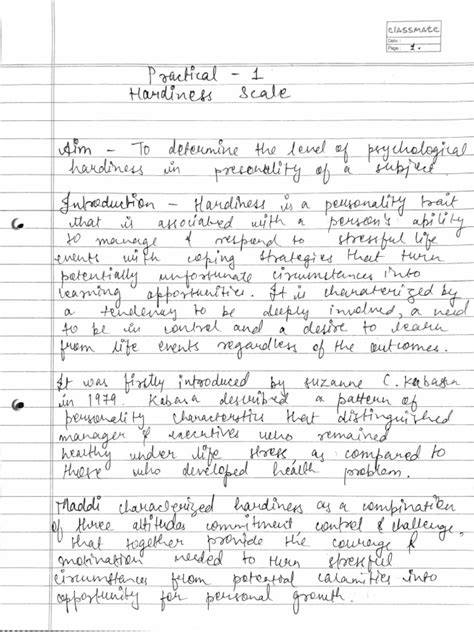 classmate
Date :
Page : 1.
Practical - 1
Hardiness Scale
Aim - To determine the level of psychological
hardiness in presonality of a subject.
Introduction - Hardiness is a personality trait
that is associated with a person's ability
to manage & respond to stressful life
events with coping strategies that turn
potentially unfortunate circumstances into
learning opportunities. It is charaterized by
a tendency to be deeply involved, a need
to be in control and a desire to learn
from life events regardless of the outcomes.
It was firstly introduced by suzanne C. Kobasa
in 1979. Kobasa described a pattern of
personality characterstics that distinguished
manager & executives who remained
healthy under life stress as compared to
those who developed health problem.
Maddi characterized hardiness as a combination
of three attitudes commitment control & challenge,
that together provide the courage &
motivation needed to turn stressful
circumstances from potential calamities into
opportunity for personal growth.